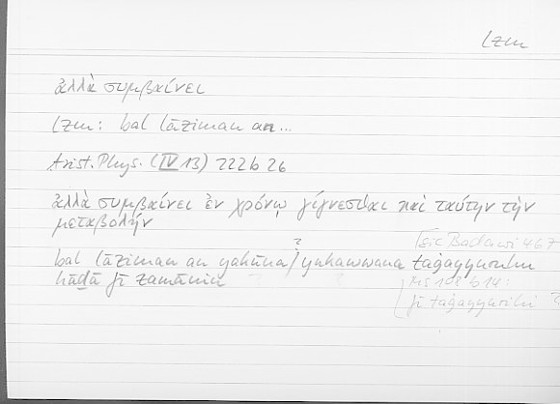 lzm
ἀλλὰ συμβαίνει
lzm: bal lāziman an...
Arist. Phys. (IV 13) 222b 26
ἀλλὰ συμβαίνει ἐν χρόνῳ γίγνεσθαι καὶ ταύτην τὴν
μεταβολήν
[sic Badawi 467
bal lāziman an yakūna / yukawwana taġayyuruhu
?
hāḏā fī zamānin
MS 108 b 14:
fī taġayyurihi ?